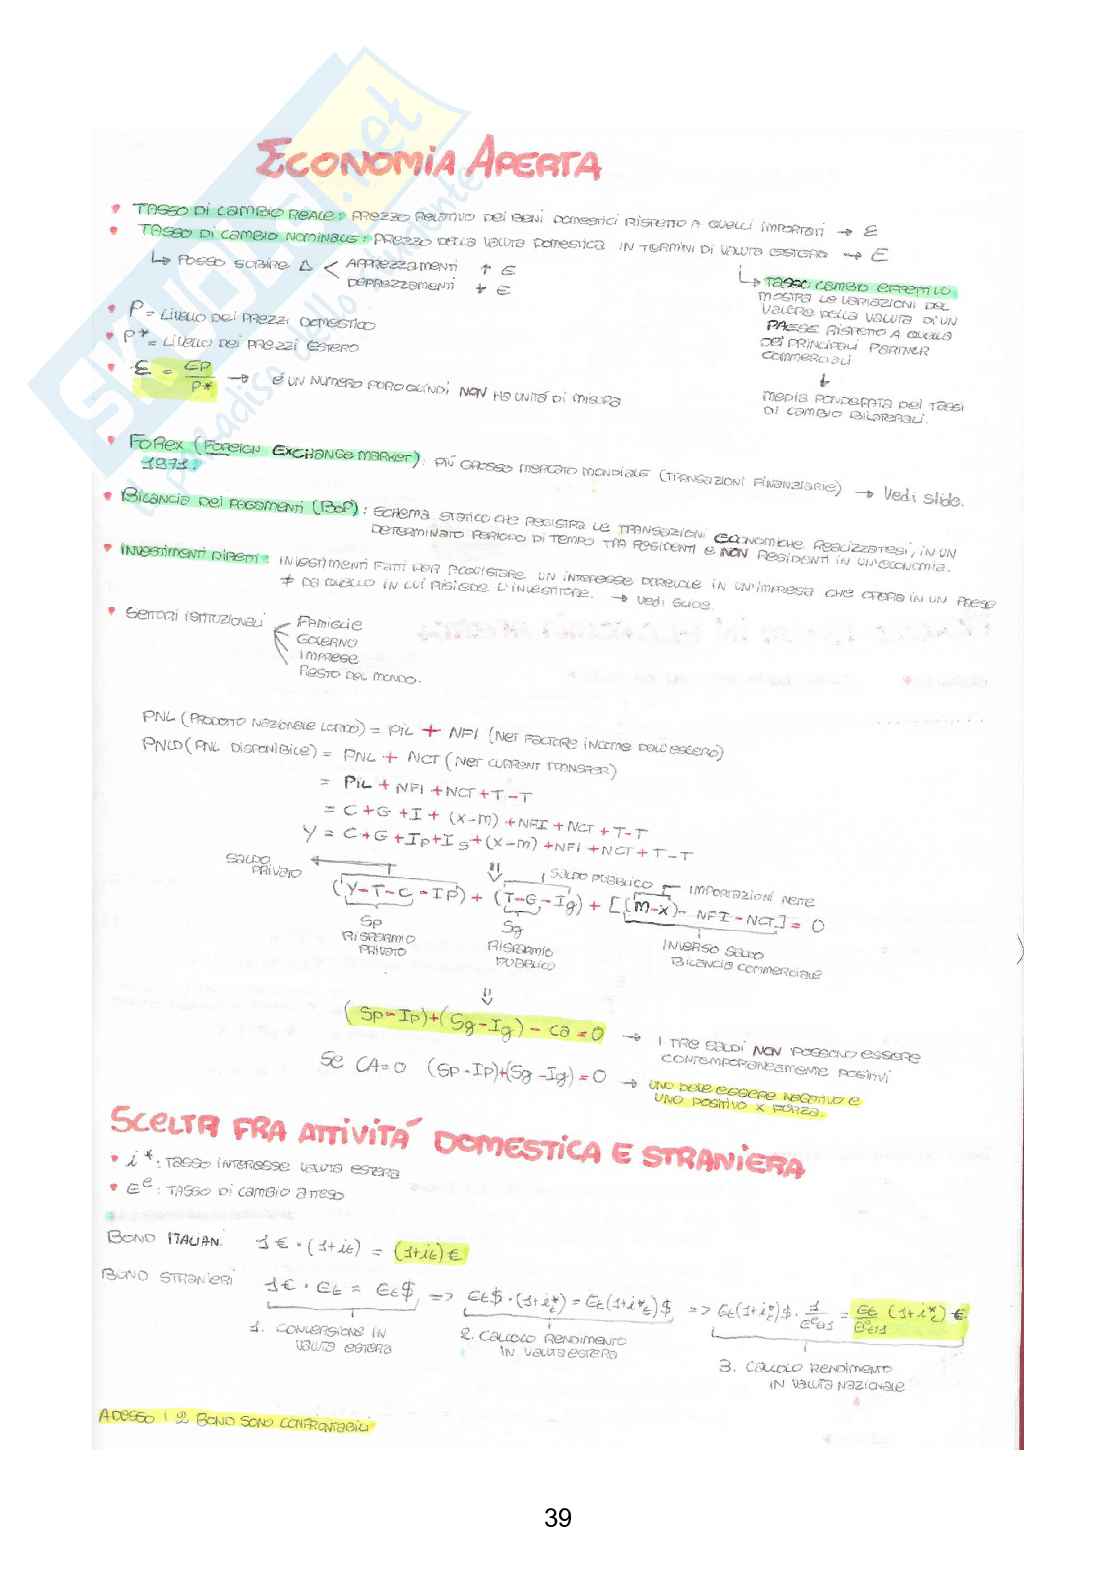 SKUOLA.net
il paradiso dello studente
ECONOMIA APERTA
• TASSO DI CAMBIO REALE: PREZZO RELATIVO DEI BENI DOMESTICI RISPETTO A QUELLI IMPORTATI → ε
• TASSO DI CAMBIO NOMINALE: PREZZO DELLA VALUTA DOMESTICA IN TERMINI DI VALUTA ESTERA → E
↳ POSSO SUBIRE Δ < APPREZZAMENTI ↑ E
DEPREZZAMENTI ↓ E
↳ TASSO CAMBIO EFFETTIVO
MOSTRA LE VARIAZIONI DEL
VALORE DELLA VALUTA DI UN
PAESE RISPETTO A QUELLA
DEI PRINCIPALI PARTNER
COMMERCIALI
↓
MEDIA PONDERATA DEI TASSI
DI CAMBIO BILATERALI.
• P = LIVELLO DEI PREZZI DOMESTICO
• P* = LIVELLO DEI PREZZI ESTERO
• ε = EP / P* → È UN NUMERO PURO QUINDI NON HA UNITÀ DI MISURA
• FOREX (FOREIGN EXCHANGE MARKET): PIÙ GROSSO MERCATO MONDIALE (TRANSAZIONI FINANZIARIE) → Vedi slide.
1971.
• BILANCIA DEI PAGAMENTI (BoP): SCHEMA STATICO CHE REGISTRA LE TRANSAZIONI ECONOMICHE REALIZZATESI, IN UN
DETERMINATO PERIODO DI TEMPO TRA RESIDENTI E NON RESIDENTI IN UN'ECONOMIA.
• INVESTIMENTI DIRETTI: INVESTIMENTI FATTI PER ACQUISTARE UN INTERESSE DUREVOLE IN UN'IMPRESA CHE OPERA IN UN PAESE
≠ DA QUELLO IN CUI RISIEDE L'INVESTITORE. → Vedi slide.
• SETTORI ISTITUZIONALI
FAMIGLIE
GOVERNO
IMPRESE
RESTO DEL MONDO.
PNL (PRODOTTO NAZIONALE LORDO) = PIL + NFI (NET FACTORE INCOME DALL'ESTERO)
PNLD (PNL DISPONIBILE) = PNL + NCT (NET CURRENT TRANSFER)
= PIL + NFI + NCT + T - T
= C + G + I + (X-M) + NFI + NCT + T - T
Y = C + G + Ip + Ig + (X-M) + NFI + NCT + T - T
SALDO PRIVATO
⇓
SALDO PUBBLICO
IMPORTAZIONI NETTE
(Y-T-C-Ip) + (T-G-Ig) + [(M-X) - NFI - NCT] = 0
Sp RISPARMIO PRIVATO
Sg RISPARMIO PUBBLICO
INVERSO SALDO BILANCIA COMMERCIALE
⇓
(Sp-Ip)+(Sg-Ig) - CA = 0 → I TRE SALDI NON POSSONO ESSERE
CONTEMPORANEAMENTE POSITIVI
Se CA=0 (Sp-Ip)+(Sg-Ig) = 0 → UNO DEVE ESSERE NEGATIVO E
UNO POSITIVO X FORZA.
SCELTA FRA ATTIVITÀ DOMESTICA E STRANIERA
• i*: TASSO INTERESSE VALUTA ESTERA
• Eᵉ: TASSO DI CAMBIO ATTESO
BOND ITALIANI 1€ · (1+it) = (1+it)€
BOND STRANIERI 1€ · Et = Et$ => Et$ · (1+i*t) = Et(1+i*t)$ => Et(1+i*t)$ · 1/Eᵉt+1 = Et/Eᵉt+1 (1+i*t) €.
1. CONVERSIONE IN
VALUTA ESTERA
2. CALCOLO RENDIMENTO
IN VALUTA ESTERA
3. CALCOLO RENDIMENTO
IN VALUTA NAZIONALE
ADESSO I 2 BOND SONO CONFRONTABILI
39